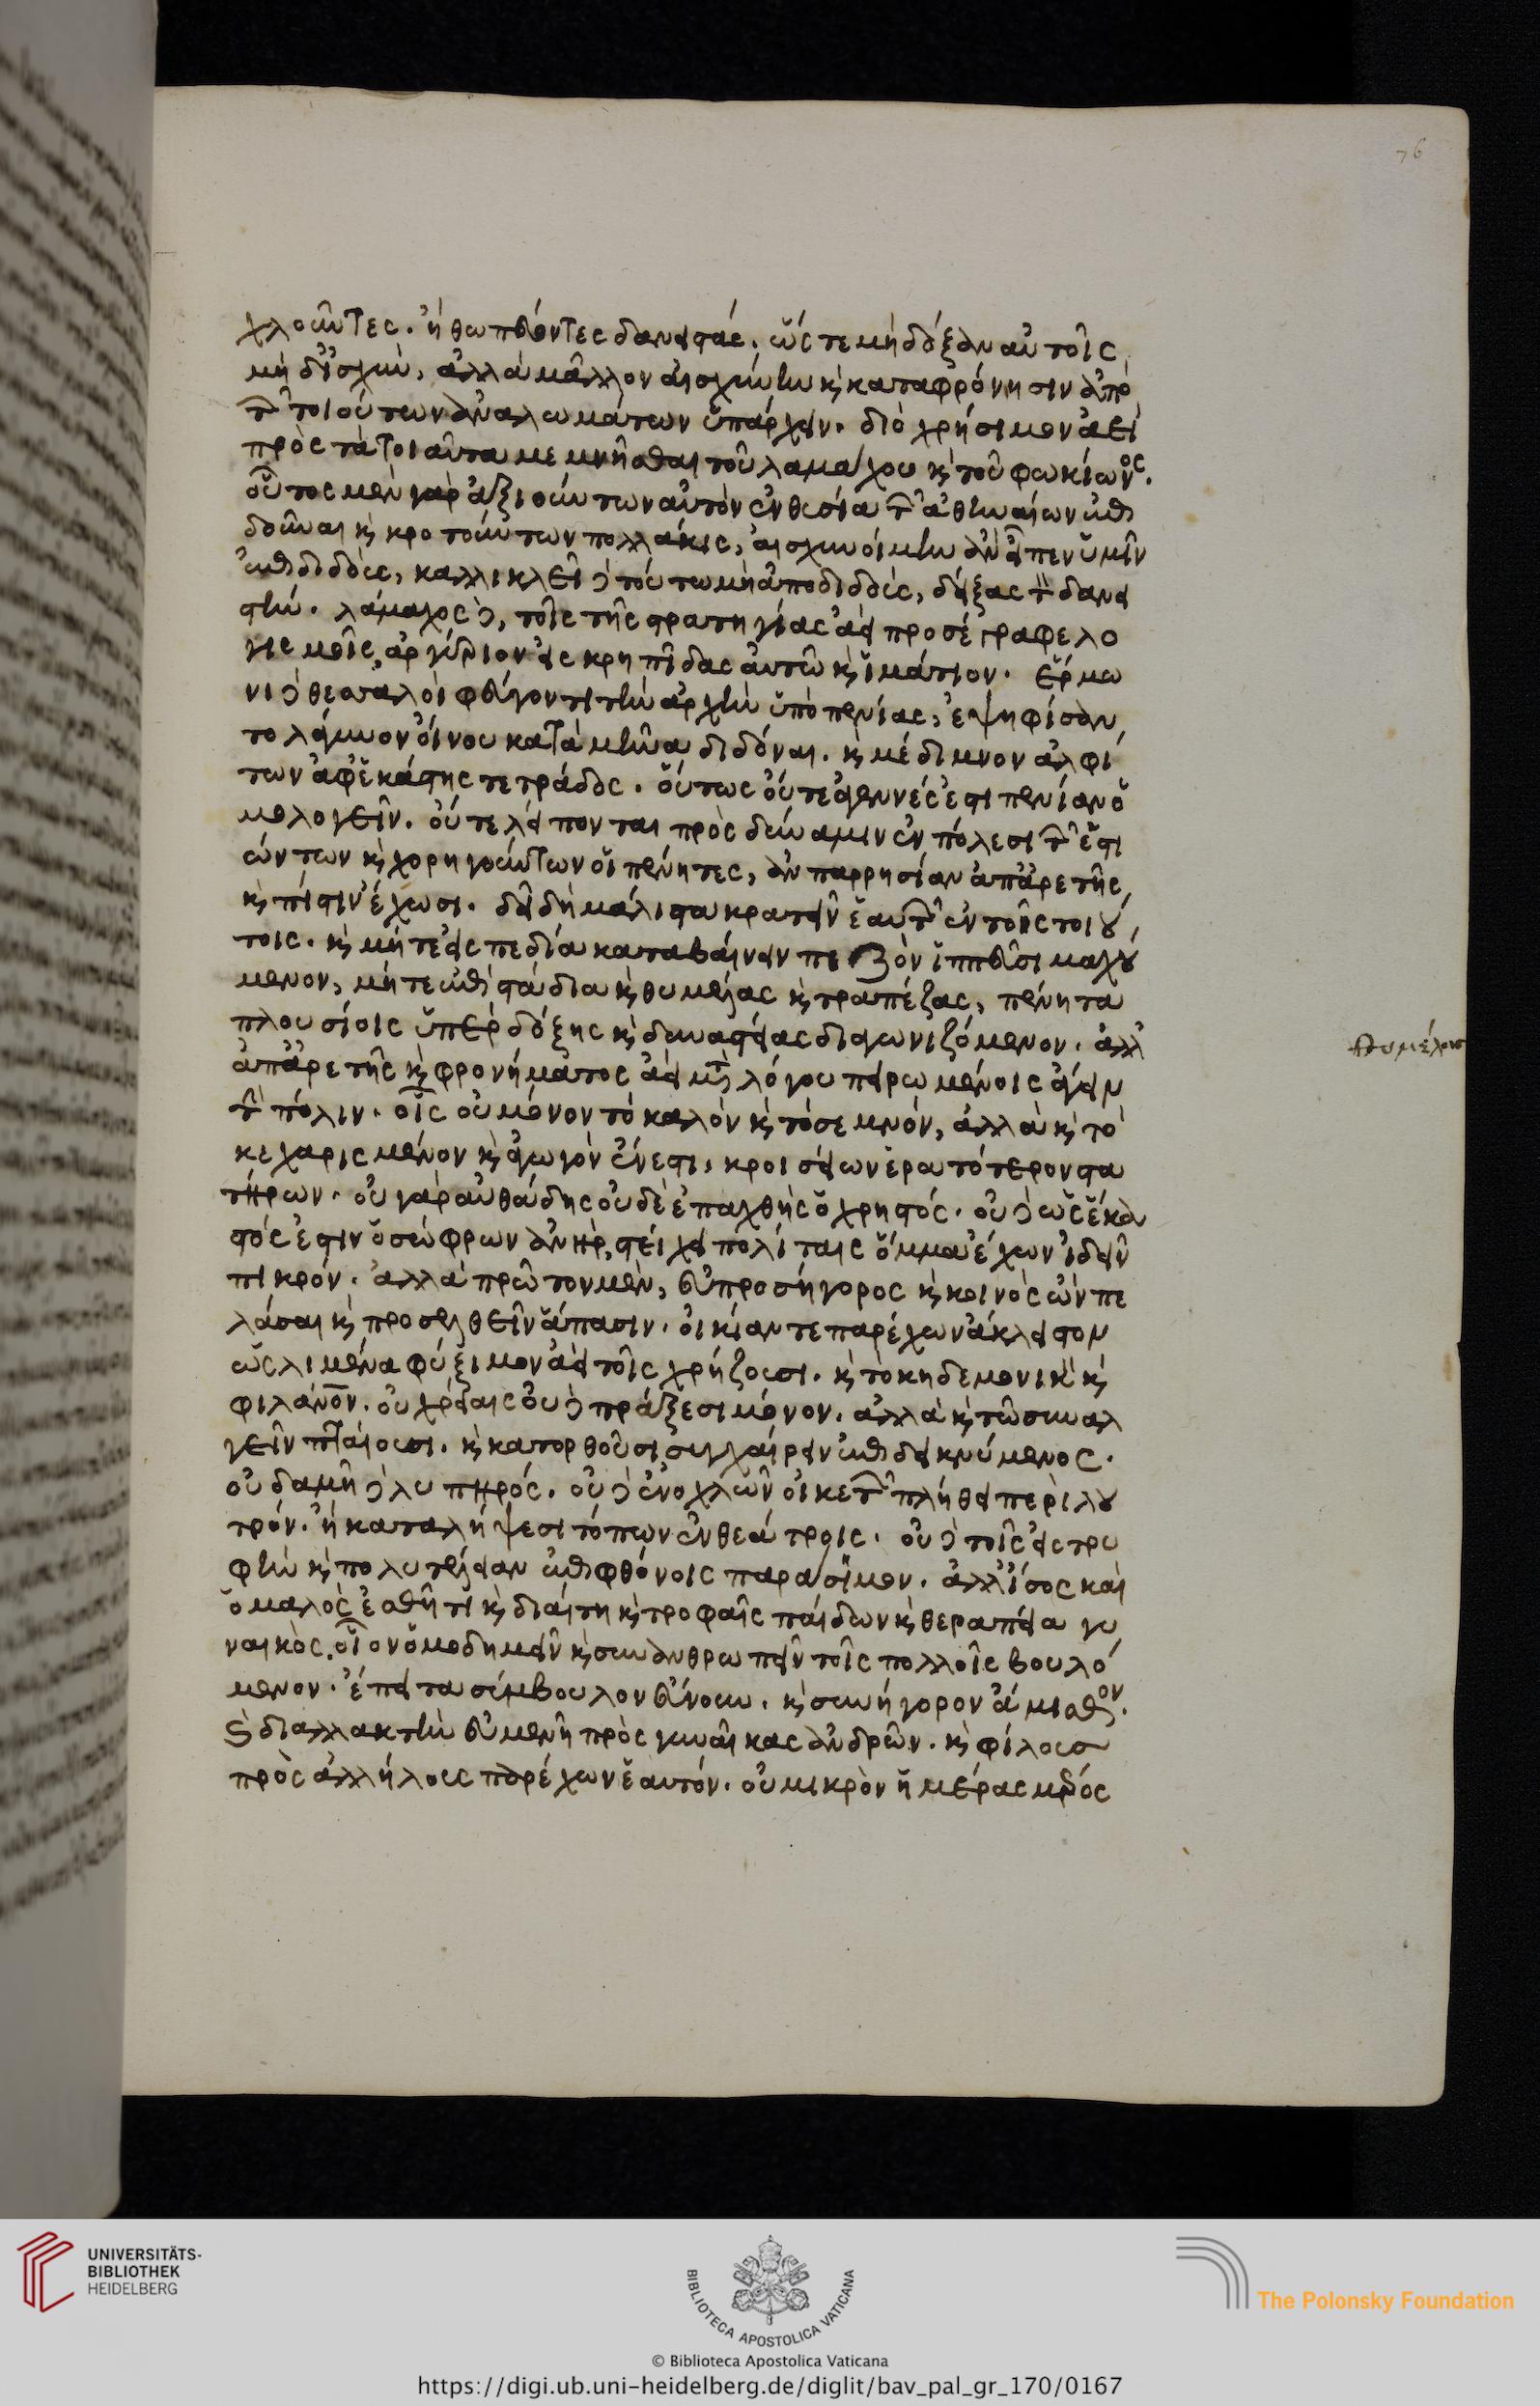 76
χλοῦντες. ἢ θωπεύοντες δανειστάς. ὥς τε μὴ δόξαν αὐτοῖς
μὴ δ' ἰσχὺν, ἀλλὰ μᾶλλον αἰσχύνην κ καταφρόνησιν ἀπὸ
τῶν τοιούτων ἀναλωμάτων ὑπάρχειν. διὸ χρήσιμον ἀεὶ
πρὸς τὰ τοιαῦτα μεμνῆσθαι τοῦ λαμάχου κ τοῦ φωκίωνος.
οὗτος μὲν γὰρ ἀξιούντων αὐτὸν ἐν θυσία τῶν ἀθηναίων ἐπι
δοῦναι κ κροτούντων πολλάκις, αἰσχυνοίμην ἂν εἶπεν ὑμῖν
ἐπιδιδοὺς, καλλικλεῖ δὲ τούτω μὴ ἀποδιδοὺς, δείξας τὸν δανει
στήν. λάμαχος δὲ, τοῖς τῆς στρατηγίας ἀεὶ προσέγραφε λο
γισμοῖς, ἀργύριον εἰς κρηπῖδας αὐτῶ κ ἱμάτιον. ἕρμω
νι δὲ θεσσαλοὶ φεύγοντι τὴν ἀρχὴν ὑπὸ πενίας, ἐψηφίσαν
το λάγυνον οἴνου κατὰ μῆνα διδόναι. κ μέδιμνον ἀλφί
των ἀφ' ἑκάστης τετράδος. οὕτως οὔτε ἀγεννές ἐστι πενίαν ὁ
μολογεῖν. οὔτε λείπονται πρὸς δύναμιν ἐν πόλεσι τῶν ἑστι
ώντων κ χορηγούντων οἱ πένητες, ἂν παρρησίαν ἀπ' ἀρετῆς
κ πίστιν ἔχωσι. δεῖ δὴ μάλιστα κρατεῖν ἑαυτῶν ἐν τοῖς τοιού
τοις. κ μήτε εἰς πεδία καταβαίνειν πεζὸν ἱππεῦσι μαχού
μενον, μήτε ἐπὶ στάδια κ θυμέλας κ τραπέζας, πένητα
πλουσίοις ὑπὲρ δόξης κ δυναστείας διαγωνιζόμενον. ἀλλ'
ἀπ' ἀρετῆς κ φρονήματος ἀεὶ μετὰ λόγου πειρωμένοις ἄγειν
τὴν πόλιν. οἷς οὐ μόνον τὸ καλὸν κ τὸ σεμνόν, ἀλλὰ κ τὸ
κεχαρισμένον κ ἀγωγὸν ἔνεστι, κροισείων ἐρατότερον στα
τήρων. οὐ γὰρ αὐθάδης οὐδὲ ἐπαχθὴς ὁ χρηστός. οὐδὲ ὡς ἕκα
στός ἐστιν ὁ σώφρων ἀνὴρ, στείχει πολίταις ὄμμα ἔχων ἰδεῖν
πικρόν. ἀλλὰ πρῶτον μὲν, εὐπροσήγορος κ κοινὸς ὢν πε
λάσαι κ προσελθεῖν ἅπασιν. οἰκίαν τε παρέχων ἄκλειστον
ὡς λιμένα φύξιμον ἀεὶ τοῖς χρήζουσι. κ τὸ κηδεμονικὸν κ
φιλάνον. οὐ χρείαις οὐδὲ πράξεσι μόνον. ἀλλὰ κ τῶ συναλ
γεῖν πταίουσι. κ κατορθοῦσι συγχαίρειν ἐπιδεικνύμενος.
οὐδαμῆ δὲ λυπηρός. οὐδὲ ἐνοχλῶν οἰκετῶν πλήθει περὶ λου
τρόν. ἢ καταλήψεσι τόπων ἐν θεάτροις. οὐδὲ τοῖς εἰς τρυ
φὴν κ πολυτέλειαν ἐπιφθόνοις παράσημον. ἀλλ' ἴσος καὶ
ὁμαλὸς ἐσθῆτι κ διαίτη κ τροφαῖς παίδων κ θεραπεία γυ
ναικὸς. οἷον ὁμοδημεῖν κ συνανθρωπεῖν τοῖς πολλοῖς βουλό
μενον. ἔπειτα σύμβουλον εὔνουν. κ συνήγορον ἄμισθον.
κ διαλλακτὴν εὐμενῆ πρὸς γυναῖκας ἀνδρῶν. κ φίλους
πρὸς ἀλλήλους παρέχων ἑαυτόν. οὐ μικρὸν ἡμέρας μέρος
θυμέλας
UNIVERSITÄTS-
BIBLIOTHEK
HEIDELBERG
BIBLIOTECA APOSTOLICA VATICANA
The Polonsky Foundation
© Biblioteca Apostolica Vaticana
https://digi.ub.uni-heidelberg.de/diglit/bav_pal_gr_170/0167